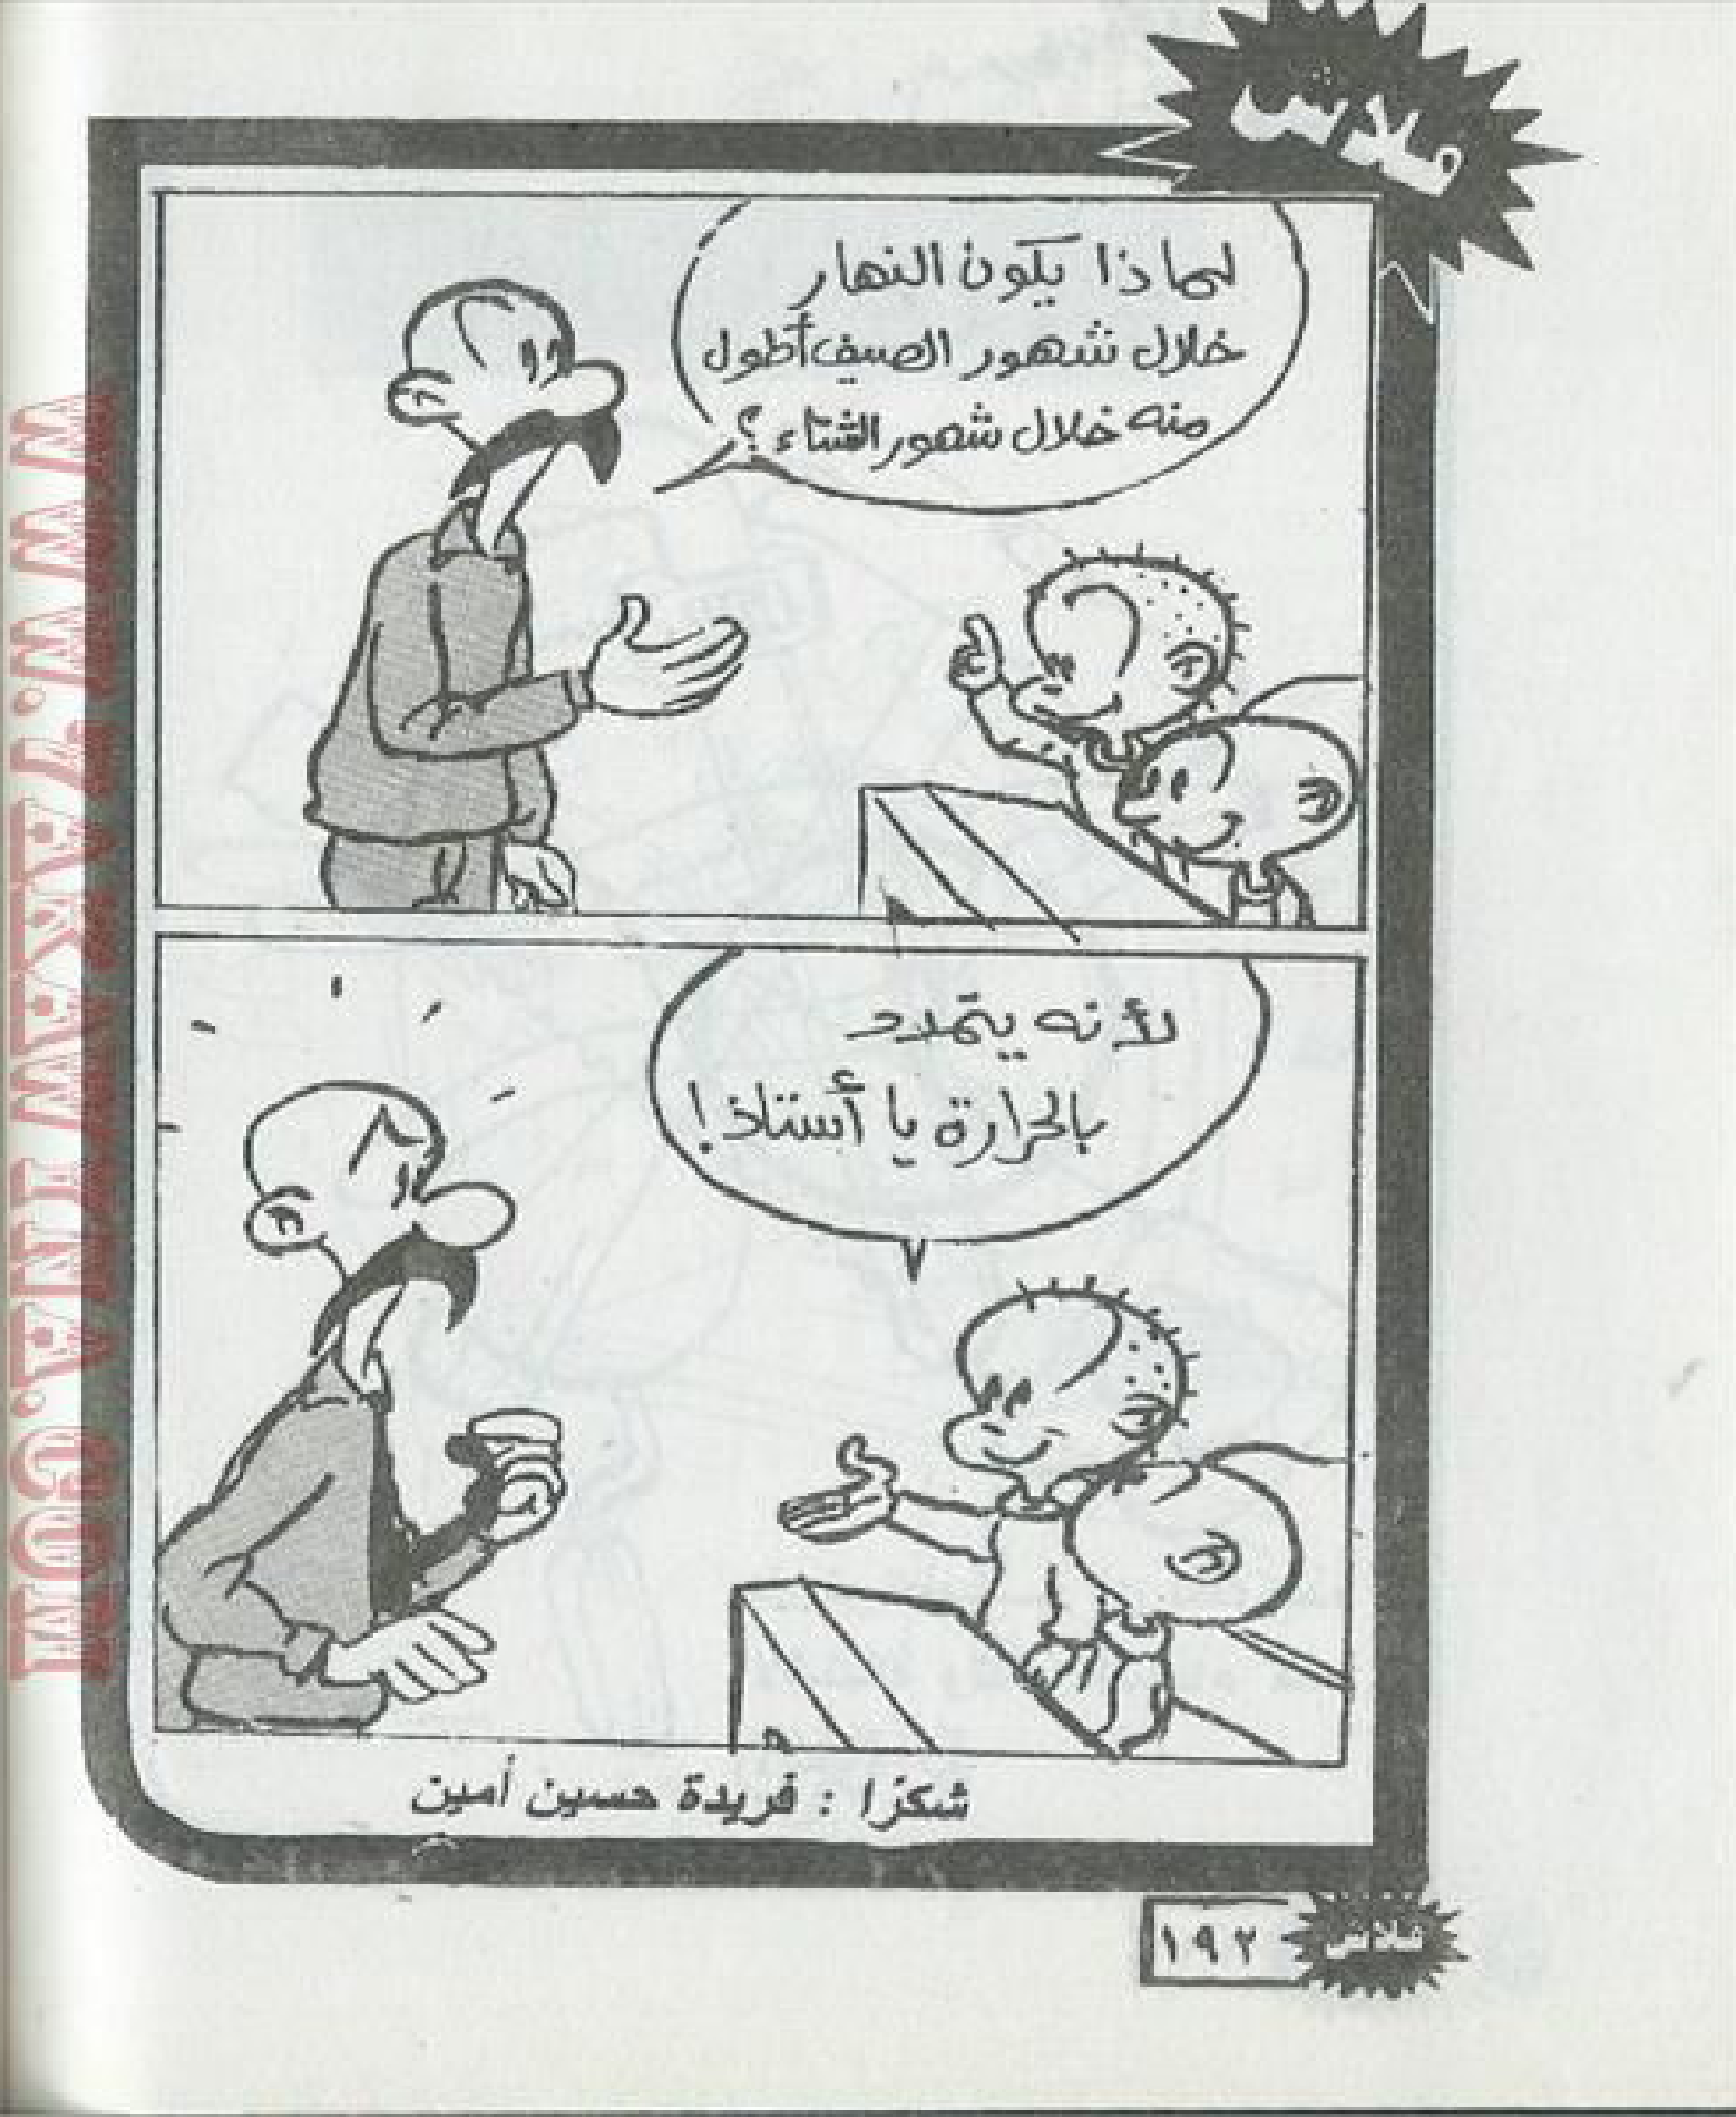 فلاش
لماذا يكون النهار
خلال شهور الصيف أطول
منه خلال شهور الشتاء؟
لأنه يتمدد
بالحرارة يا أستاذ!
شكرًا : فريدة حسين أمين
١٩٢
فلاش
WWW.DVD4ARAB.COM